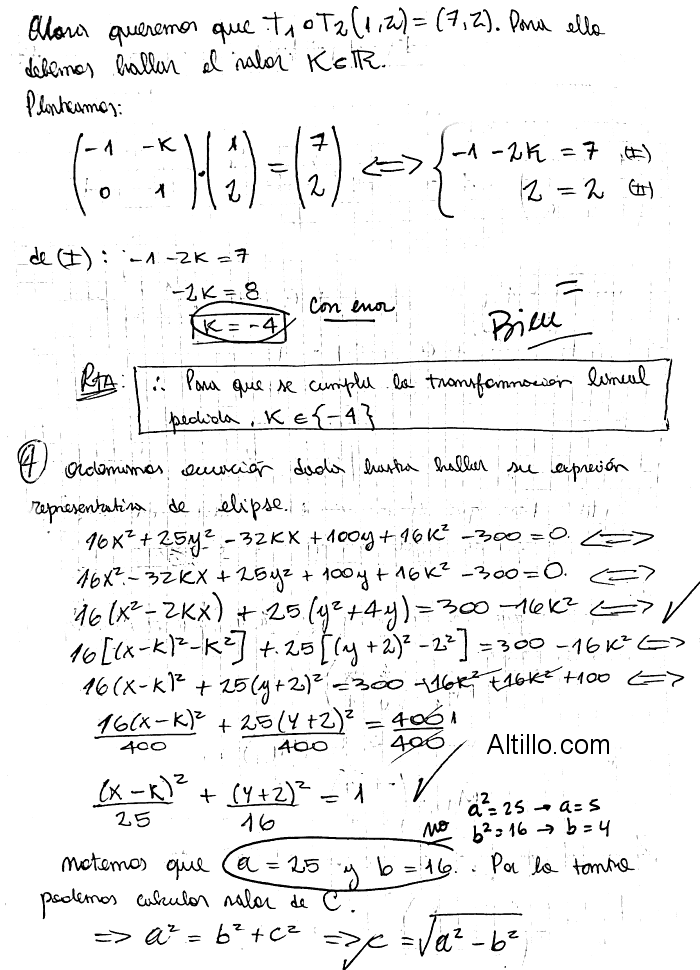 Ahora queremos que T₁ o T₂ (1,2) = (7,2). Para ello
debemos hallar el valor K ∈ ℝ.
Planteamos:
(-1 -K; 0 1) · (1; 2) = (7; 2) ⟺ { -1 - 2K = 7 (I)
2 = 2 (II)
de (I): -1 - 2K = 7
-2K = 8
K = -4
Con error
Bien
RTA: ∴ Para que se cumpla la transformación lineal
pedida, K ∈ {-4}
4 Ordenamos ecuación dada hasta hallar su expresión
representativa de elipse:
16x² + 25y² - 32Kx + 100y + 16K² - 300 = 0. ⟺
16x² - 32Kx + 25y² + 100y + 16K² - 300 = 0. ⟺
16(x² - 2Kx) + 25(y² + 4y) = 300 - 16K² ⟺ ✓
16[(x-K)² - K²] + 25[(y+2)² - 2²] = 300 - 16K² ⟺
16(x-K)² + 25(y+2)² = 300 - 16K² + 16K² + 100 ⟺
16(x-K)²/400 + 25(y+2)²/400 = 400/400 1
Altillo.com
(x-K)²/25 + (y+2)²/16 = 1 ✓
a² = 25 → a = 5
no b² = 16 → b = 4
notemos que a = 25 y b = 16. Por lo tanto
podemos calcular valor de C.
⟹ a² = b² + c² ⟹ c = √(a² - b²)